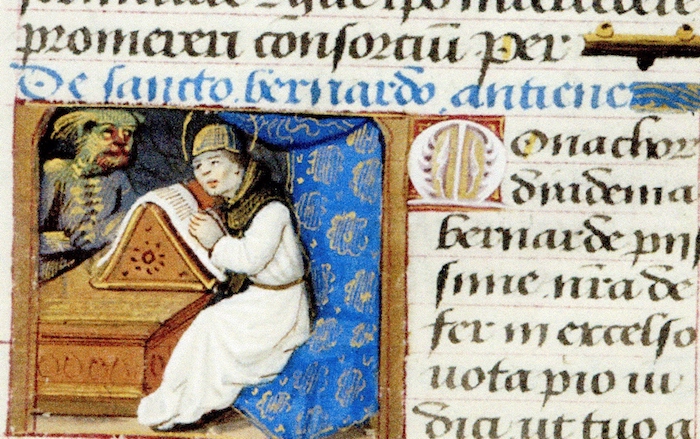 promereri consorciū per
De sancto bernardo antiene
Monachor
diadema
bernarde pij
sime nr̄a de
fer in excelso
uota pio iu
dici ut tuo